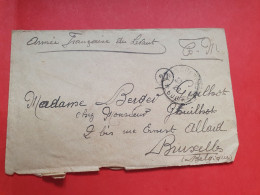 Armée Française du Levant
F. M.
Madame Berger Guilhot
chez Monsieur Guilhot
2 bis rue Ernest Allard
Bruxelles
(Belgique)